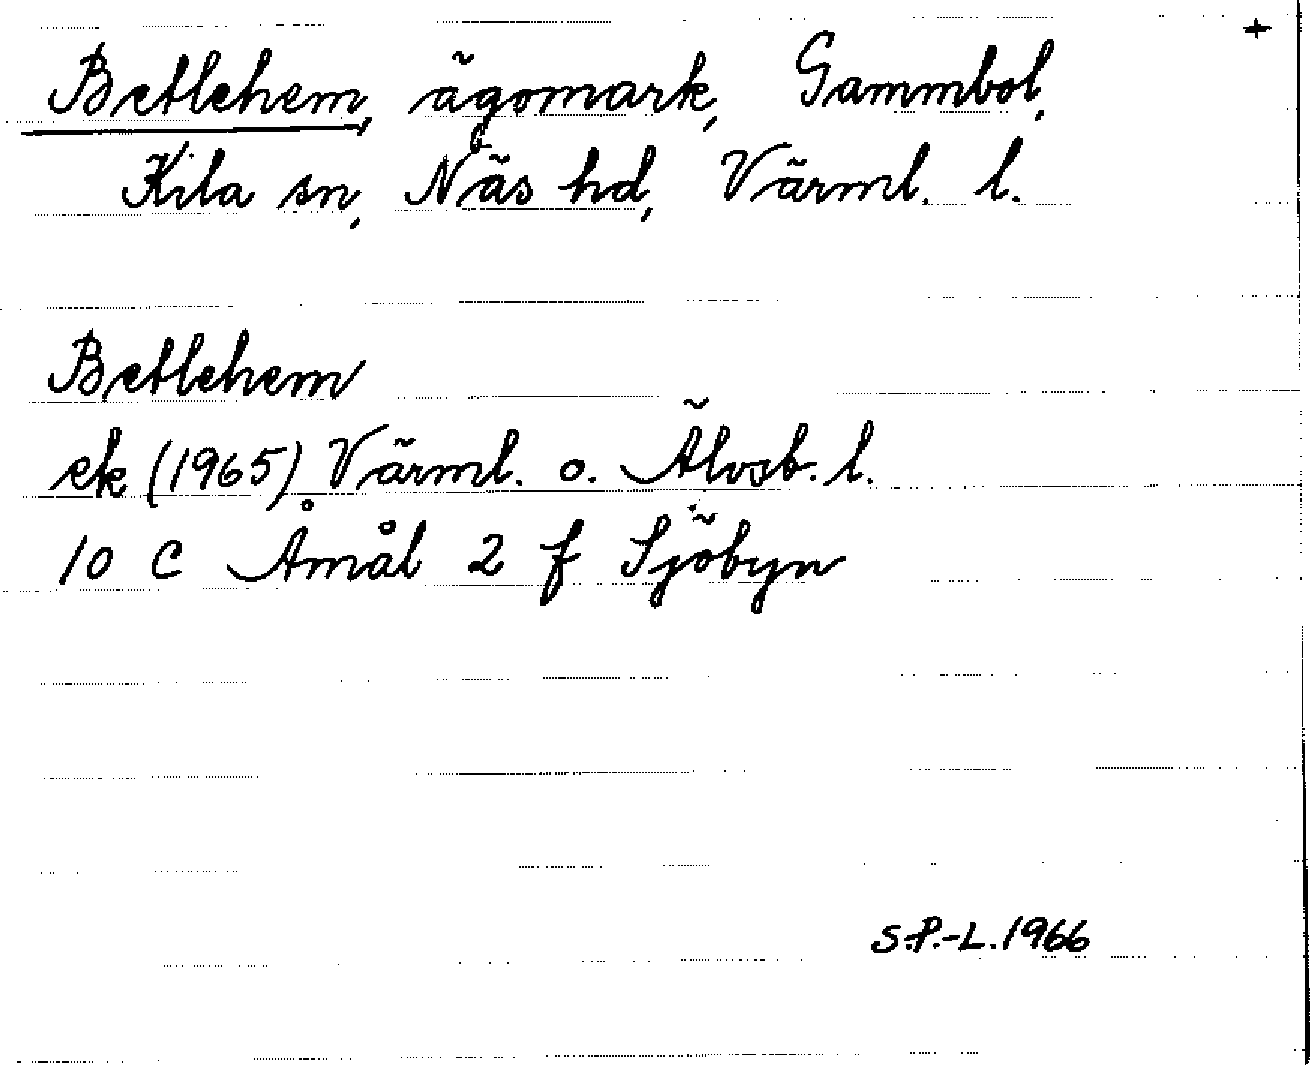 +
Betlehem, ägomark, Gammbol,
Kila sn, Näs hd, Värml. l.
Betlehem
ek (1965) Värml. o. Älvsb. l.
10 C Åmål 2 f Sjöbyn
S.P.-L. 1966